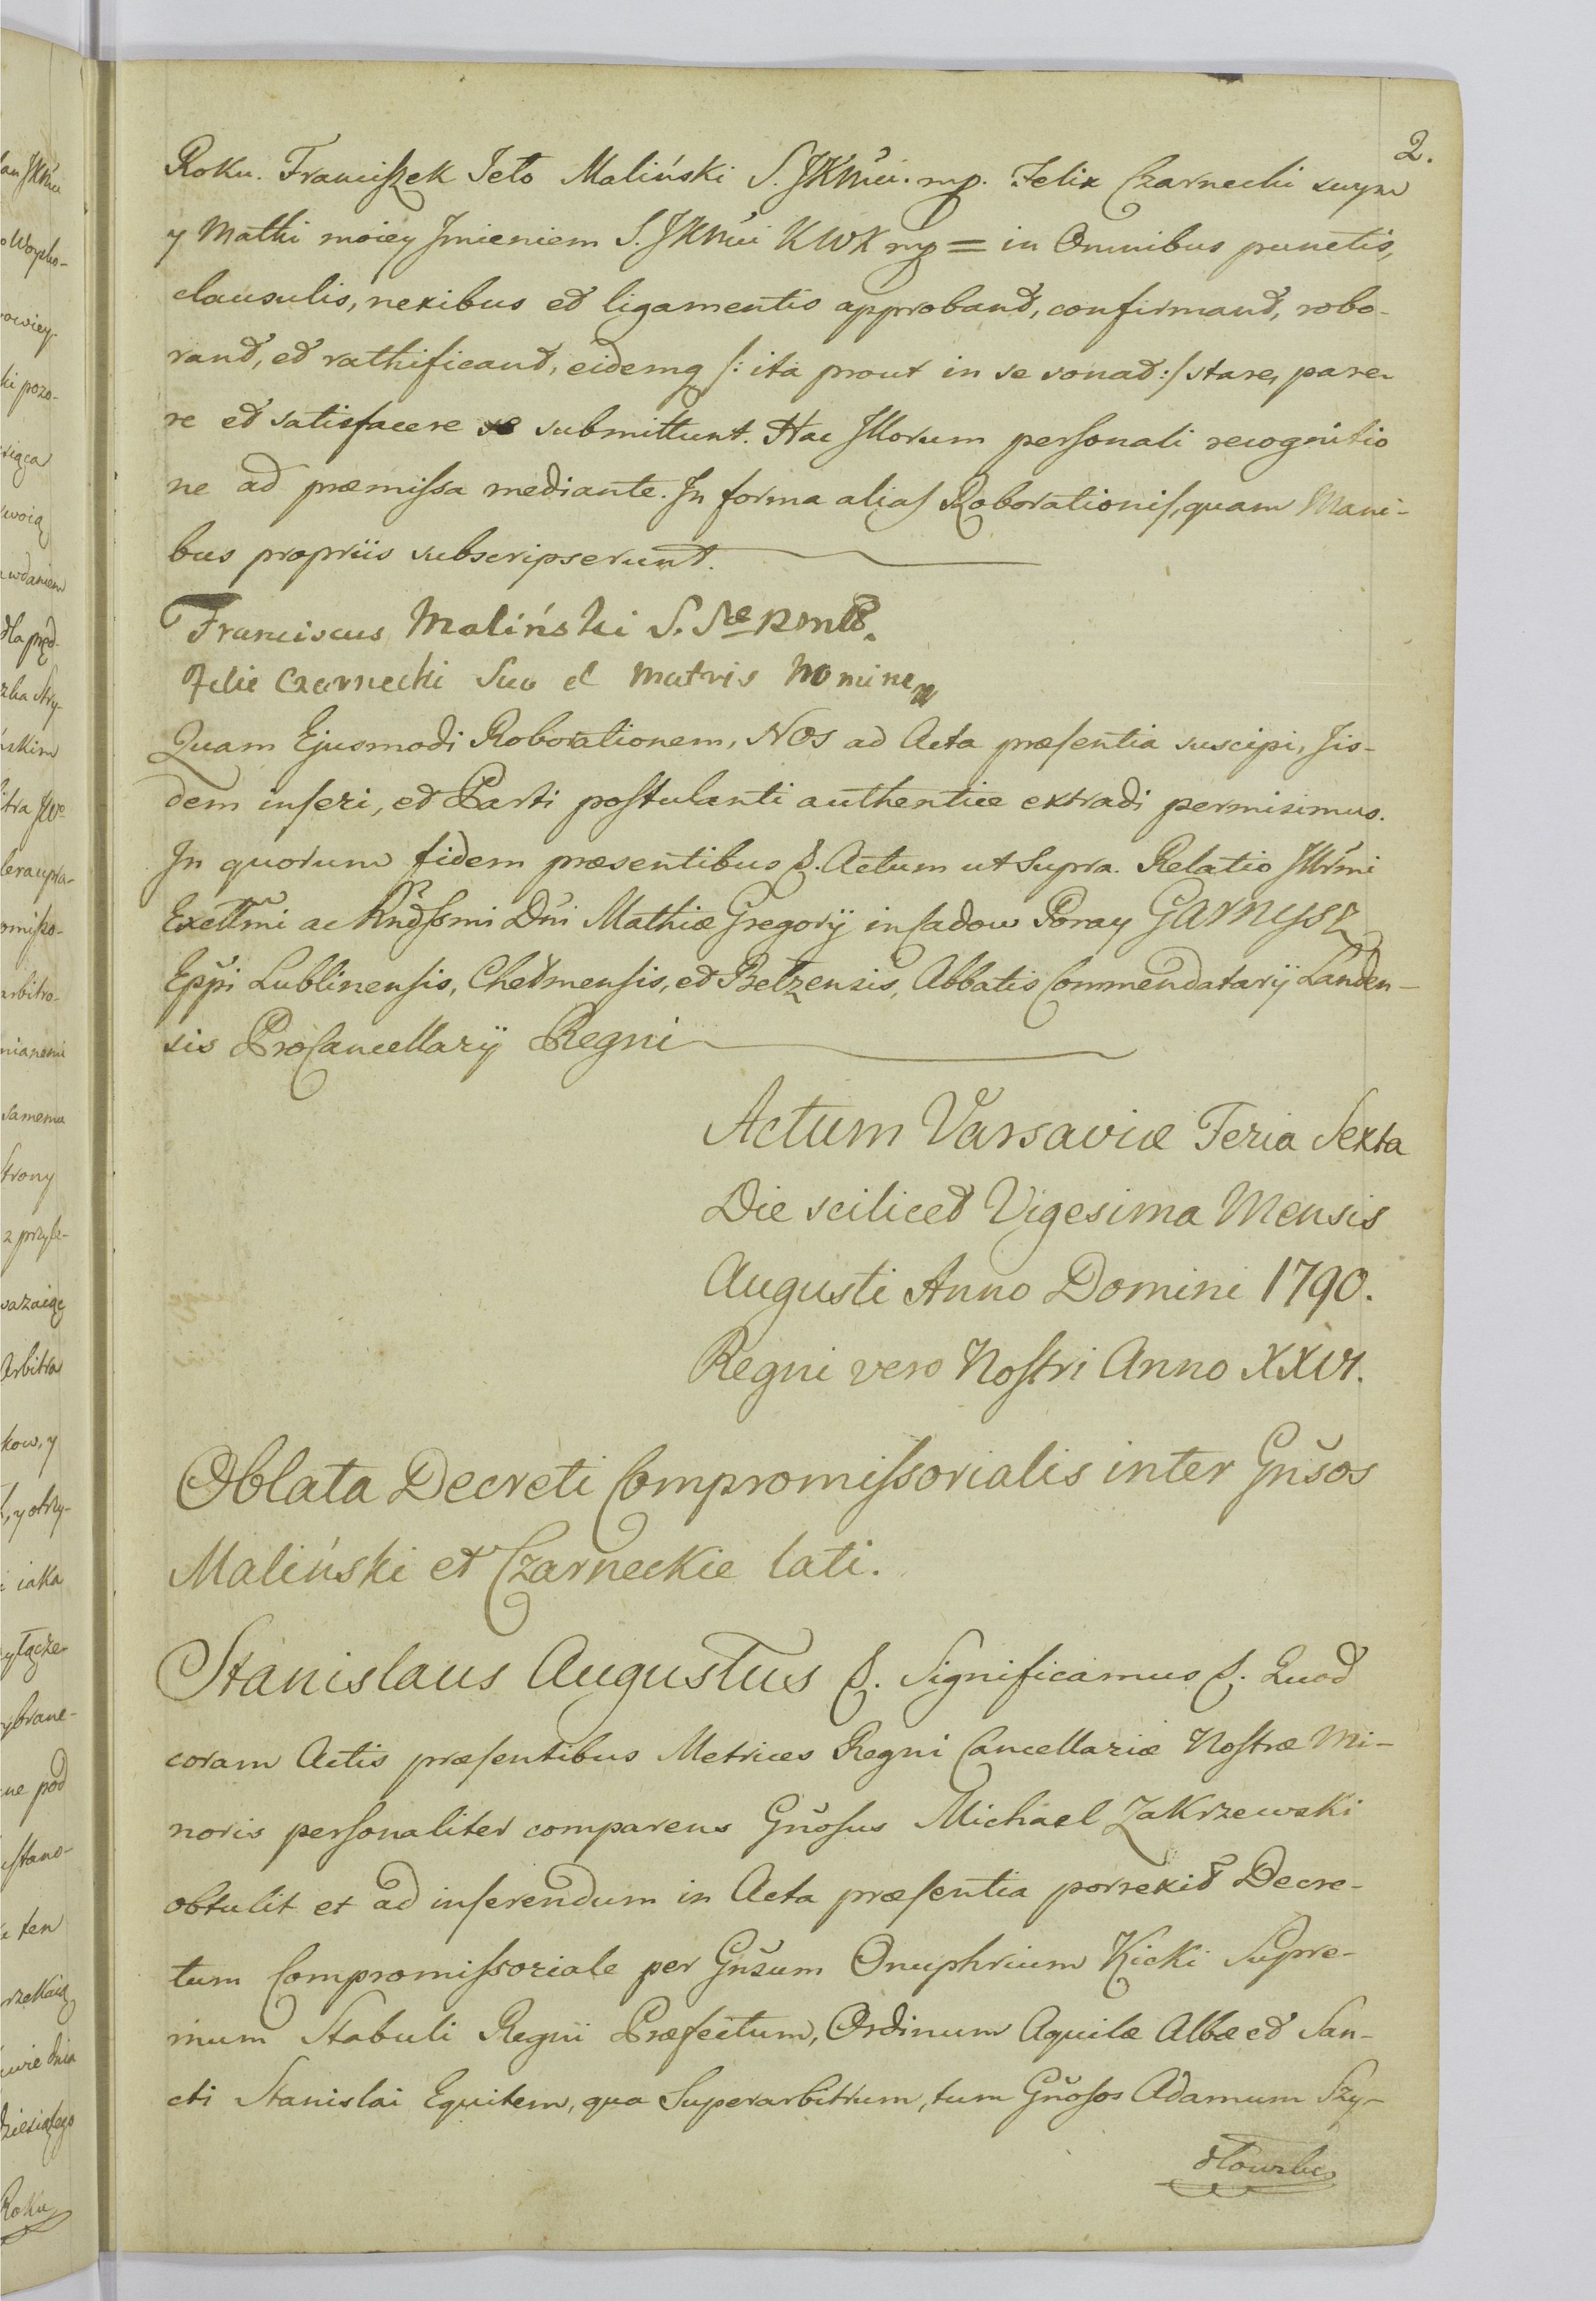 2.
Roku. Franciszek Jeło Maliński S. JKMci. mp. Felix Czarnecki swym
y Matki moiey Jmieniem S. JKMci KWK mp = in Omnibus punctis,
clausulis, nexibus et ligamentis approband, confirmand, robo-
rand, et rathificand, eidemq /: ita prout in se sonat :/ stare, pare-
re et satisfacere submittunt. Hac Illorum personali recognitio
ne ad præmissa mediante. In forma alias Roborationis, quam Mani-
bus propriis subscripserunt.
Franciscus Maliński S.
Felix Czarnecki Suo et Matris Nomine
Quam Ejusmodi Roborationem, NOS ad Acta præsentia suscipi, Jis-
dem inseri, et Parti postulanti authentice extradi permisimus.
In quorum fidem præsentibus &. Actum ut Supra. Relatio Illrmi
Excellmi ac Rndssmi Dni Mathiæ Gregorij in Cadow Poray GARNYSZ
Eppi Lublinensis, Chełmensis, et Bełzensis, Abbatis Commendatarij Landen-
sis ProCancellarij Regni
Actum Varsaviæ Feria Sexta
Die scilicet Vigesima Mensis
Augusti Anno Domini 1790.
Regni vero Nostri Anno XXVI.
Oblata Decreti Compromissorialis inter Gnsos
Maliński et Czarneckie lati.
Stanislaus Augustus &. Significamus &. Quod
coram Actis præsentibus Metrices Regni Cancellariæ Nostræ Mi-
noris personaliter comparens Gnosus Michael Zakrzewski
obtulit et ad inserendum in Acta præsentia porrexit Decre-
tum Compromissoriale per Gnsum Onuphrium Kicki Supre-
mum Stabuli Regni Præfectum, Ordinum Aquilæ Albæ et San-
cti Stanislai Equitem, qua Superarbitrum, tum Gnosos Adamum Szy-